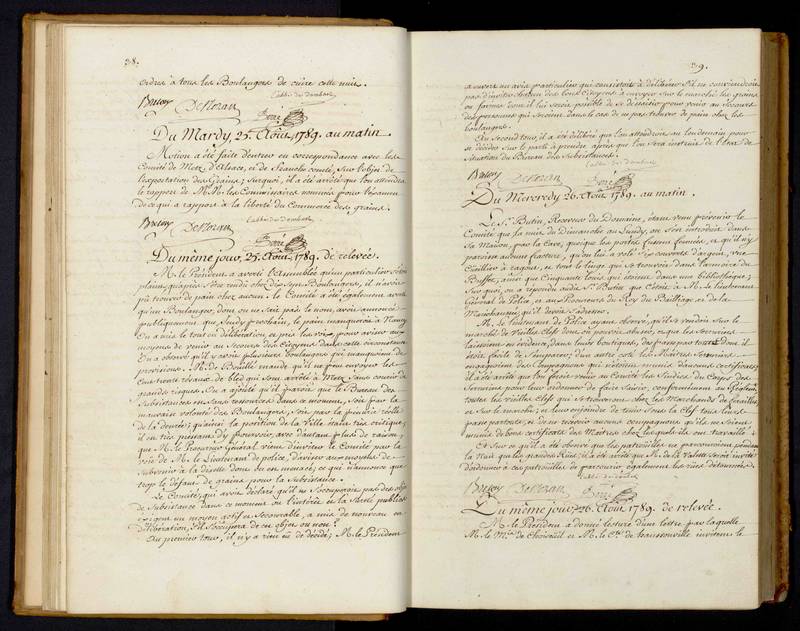 38.
ordres à tous les Boulangers de cuire cette nuit.
l'abbé de Dombasle
Du Mardy, 25. Août, 1789. au matin.
Motion a été faite d'entrer en correspondance avec les
Comité de Metz, d'Alsace, et de franche comté, sur l'objet de
l'exportation des Grains; surquoi, il a été arrêté que l'on attendra
le rapport de M.M. les Commissaires nommés pour l'examen
de ce qui a rapport à la liberté du Commerce des grains.
l'abbé de Dombasle
Du même jour, 25. Août, 1789. de relevée.
M. le Président a averti l'assemblée qu'un particulier s'étant
plaint, qu'après s'être rendi chez dix-sept Boulangers, il n'avoit
pû trouver de pain chez aucun. Le Comité a été également averti
qu'un Boulanger, dont on ne sait pas le nom, avoit annoncé
publiquement que Jeudy prochain, le pain manqueroit à Nancy.
On a mis le tout en délibération, et pris les voix, pour aviser aux
moyens de venir au Secours des Citoyens dans cette circonstance
On a observé qu'il y avoit plusieurs boulangers qui manquoient de
provisions. M. de Bouillé mande qu'il ne peut envoyer les
quatre cents résaux de bled qui sont arrêté à Metz sans courir de
grands risques. On a ajouté qu'il paroit que le Bureau des
Subsistances est sans ressources dans ce moment, soit par la
mauvaise volonté des Boulangers, soit par la pénurie réelle
de la denrée; qu'ainsi la position de la Ville étant très critique,
il est très pressant d'y pourvoir, avec d'autant plus de raison,
que M. le Procureur Général vient d'inviter le Comité par la
voie de M. le Lieutenant de police, d'aviser aux moyens de
subvenir à la disette dont on est menacé; ce qui n'annonce que
trop le défaut de grains pour la Subsistance.
Le Comité, qui avoit déclaré qu'il ne s'occuperoit pas des objets
de Subsistance dans ce moment ou l'intérêt et la Sûreté publics
exigent un moyen actif et secourable, a mis de nouveau en
délibération, s'il s'occupera de cet objet ou non?
Au premier tour, il n'y a rien eu de décidé; M. le Président
39.
a ouvert un avis particulier qui consistoit à délibérer s'il ne conviendroit
pas d'inviter chacun des bons Citoyens à envoyer sur le marché les grains
ou farines dont il lui seroit possible de se dessaisir pour venir au Secours
des personnes qui seroient dans le cas de ne pas trouver de pain chez les
boulangers.
Au second tour, il a été délibéré que l'on attendroit au lendemain pour
se décider sur le parti à prendre après que l'on sera instruit de l'état de
situation du Bureau des Subsistances.
l'abbé de Dombasle
Du Mercredy, 26. Août, 1789. au matin.
Le Sr. Butin, Receveur du Domaine, étant venu prévenir le
Comité que la nuit du Dimanche au Lundy, on s'est introduit dans
sa Maison, par la Cave, quoique les portes fussent fermées, et qu'il n'y
parut aucune fracture, qu'on lui a volé six couverts d'argent, une
Cuillier à ragout, et tout le linge qui se trouvoit dans l'armoire du
Buffet, ainsi que Cinquante Louis qui étoient dans une bibliothèque;
sur quoi, on a répondu audit Sr. Butin que c'étoit à M. le Lieutenant
Général de Police, et au Procureur du Roy du Bailliage, et de la
Maréchaussée, qu'il devoit s'adresser.
M. le Lieutenant de Police ayant observé, qu'il se vendoit sur le
marché de vieilles Clefs dont on pouvoit abuser, et que les Serruriers
laissoient en évidence, dans leurs boutiques, des passe par tout dont il
étoit facile de s'emparer; d'un autre coté les Maîtres Serruriers
engageoient des Compagnons qui n'étoient munis d'aucuns certificats;
il a été arrêté que l'on feroit venir au Comité les Sindics du Corps des
Serruriers pour leur ordonner de faire saisir, conformément au Règlement,
toutes les vieilles Clefs qui se trouveront chez les Marchands de ferrailles,
et sur le marché; et leur enjoindre de tenir sous la Clef tous leurs
passe partouts, et de ne recevoir aucuns compagnons qu'ils ne soient
munis de bons certificats des Maîtres chez lesquels ils ont travaillé.
Et sur ce qu'il a été observé que les patrouilles ne parcouroient pendant
la nuit que les grandes Rues; il a été arrêté que M. de la Valette seroit invité
d'ordonner à ces patrouilles de parcourir également les rües détournées.
l'abbé de Dombasle
Du même jour, 26. Août, 1789. de relevée.
M. le Président a donné lecture d'une lettre par laquelle
M. le Mis. de Choiseuil et M. le Cte. de